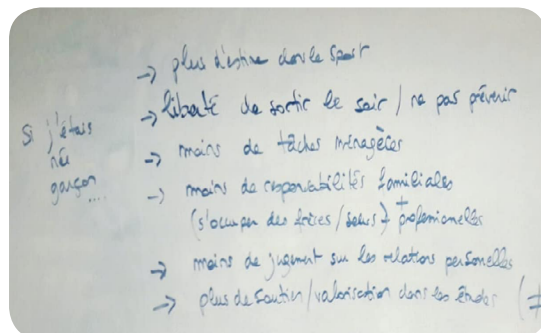 Si j'étais
née
garçon ....
-> plus d'estime dans le sport
-> liberté de sortir le soir / ne pas prévenir
-> moins de tâches ménagères
-> moins de responsabilités familiales
(s'occuper des frères / sœurs) + professionnelles
-> moins de jugement sur les relations personnelles
-> plus de soutien / valorisation dans les études (≠